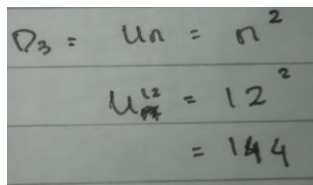 D₃ = Un = n²
U12 = 12²
= 144